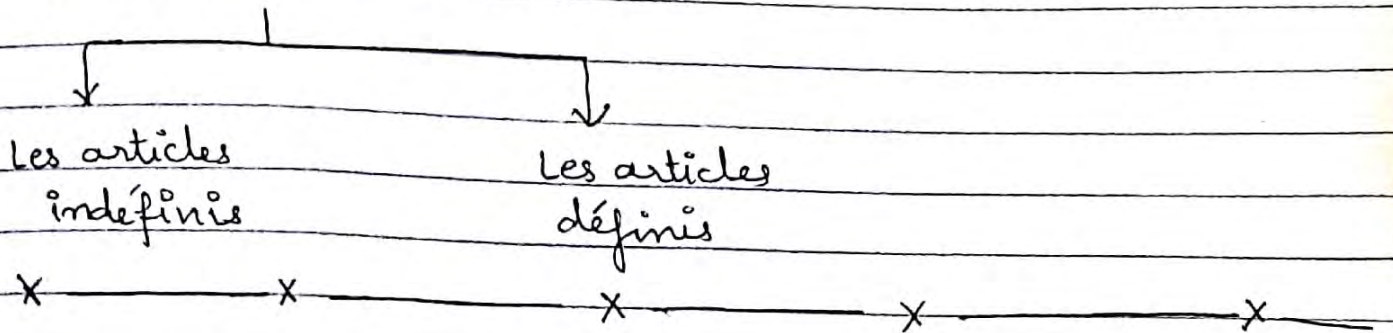 Les articles
indéfinis
Les articles
définis
x x x x x